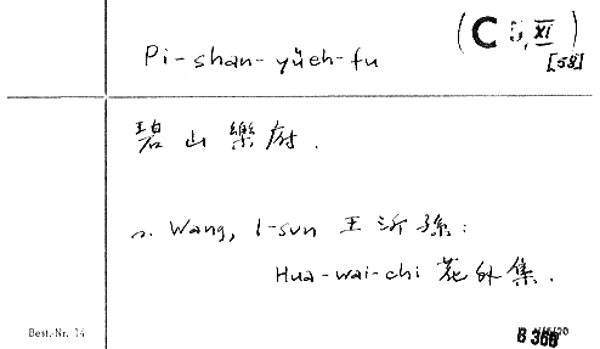 (C 5, XI)
[58]
Pi-shan-yüeh-fu
碧山樂府.
s. Wang, I-sun 王沂孫:
Hua-wai-chi 花外集.
Best.-Nr. 14
B 366